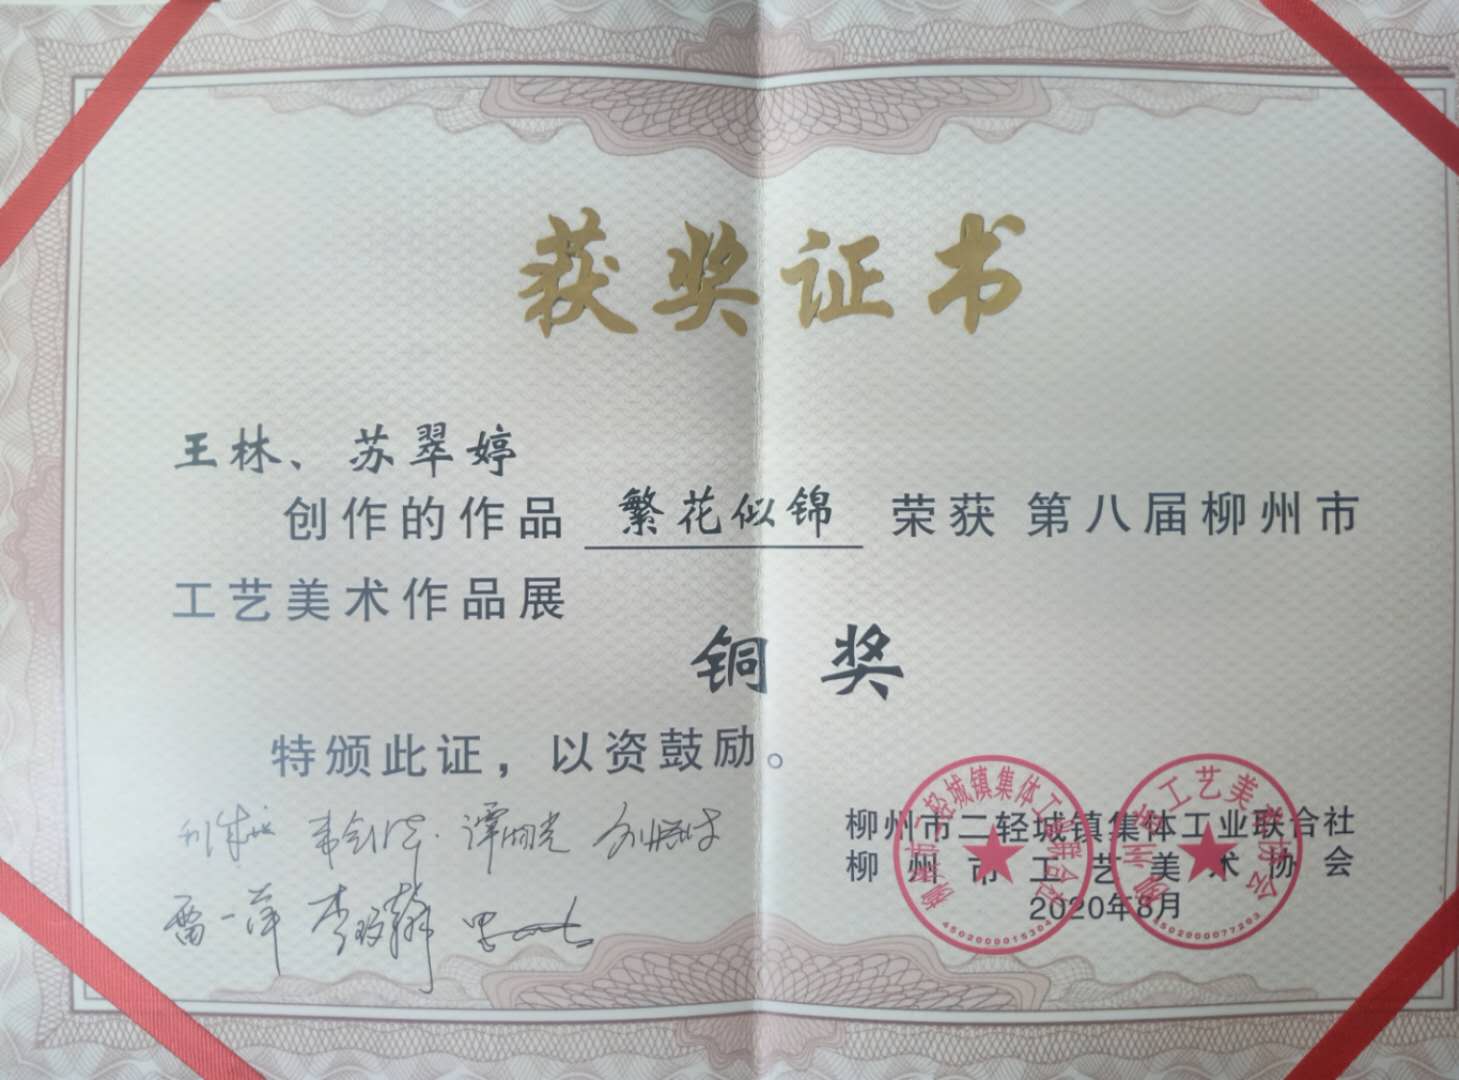 获奖证书
王林、苏翠婷
创作的作品 繁花似锦 荣获 第八届柳州市
工艺美术作品展
铜奖
特颁此证，以资鼓励。
柳州市二轻城镇集体工业联合社
柳州市工艺美术协会
2020年8月
雷一萍